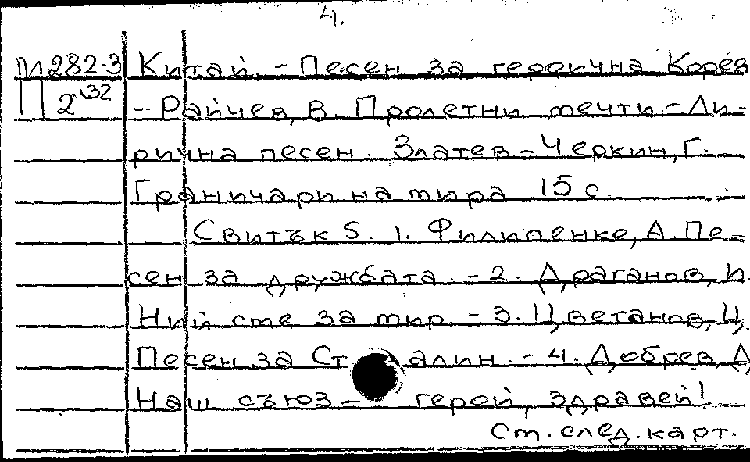 4.
М 282-3 Китай. - Песен за героична Корея
П 2 32 - Райчев, В. Пролетни мечти - Ли-
рична песен. Златев-Черкин, Г.
Граничари на мира 15 с.
Свитък 5. 1. Филипенко, А. Пе-
сен за дружбата. - 2. Драганов, И.
Ний сме за мир - 3. Цветанов, Ц.
Песен за Сталин. - 4. Добрев, Д
Наш съюз - герой, здравей!
Ст. след. карт.